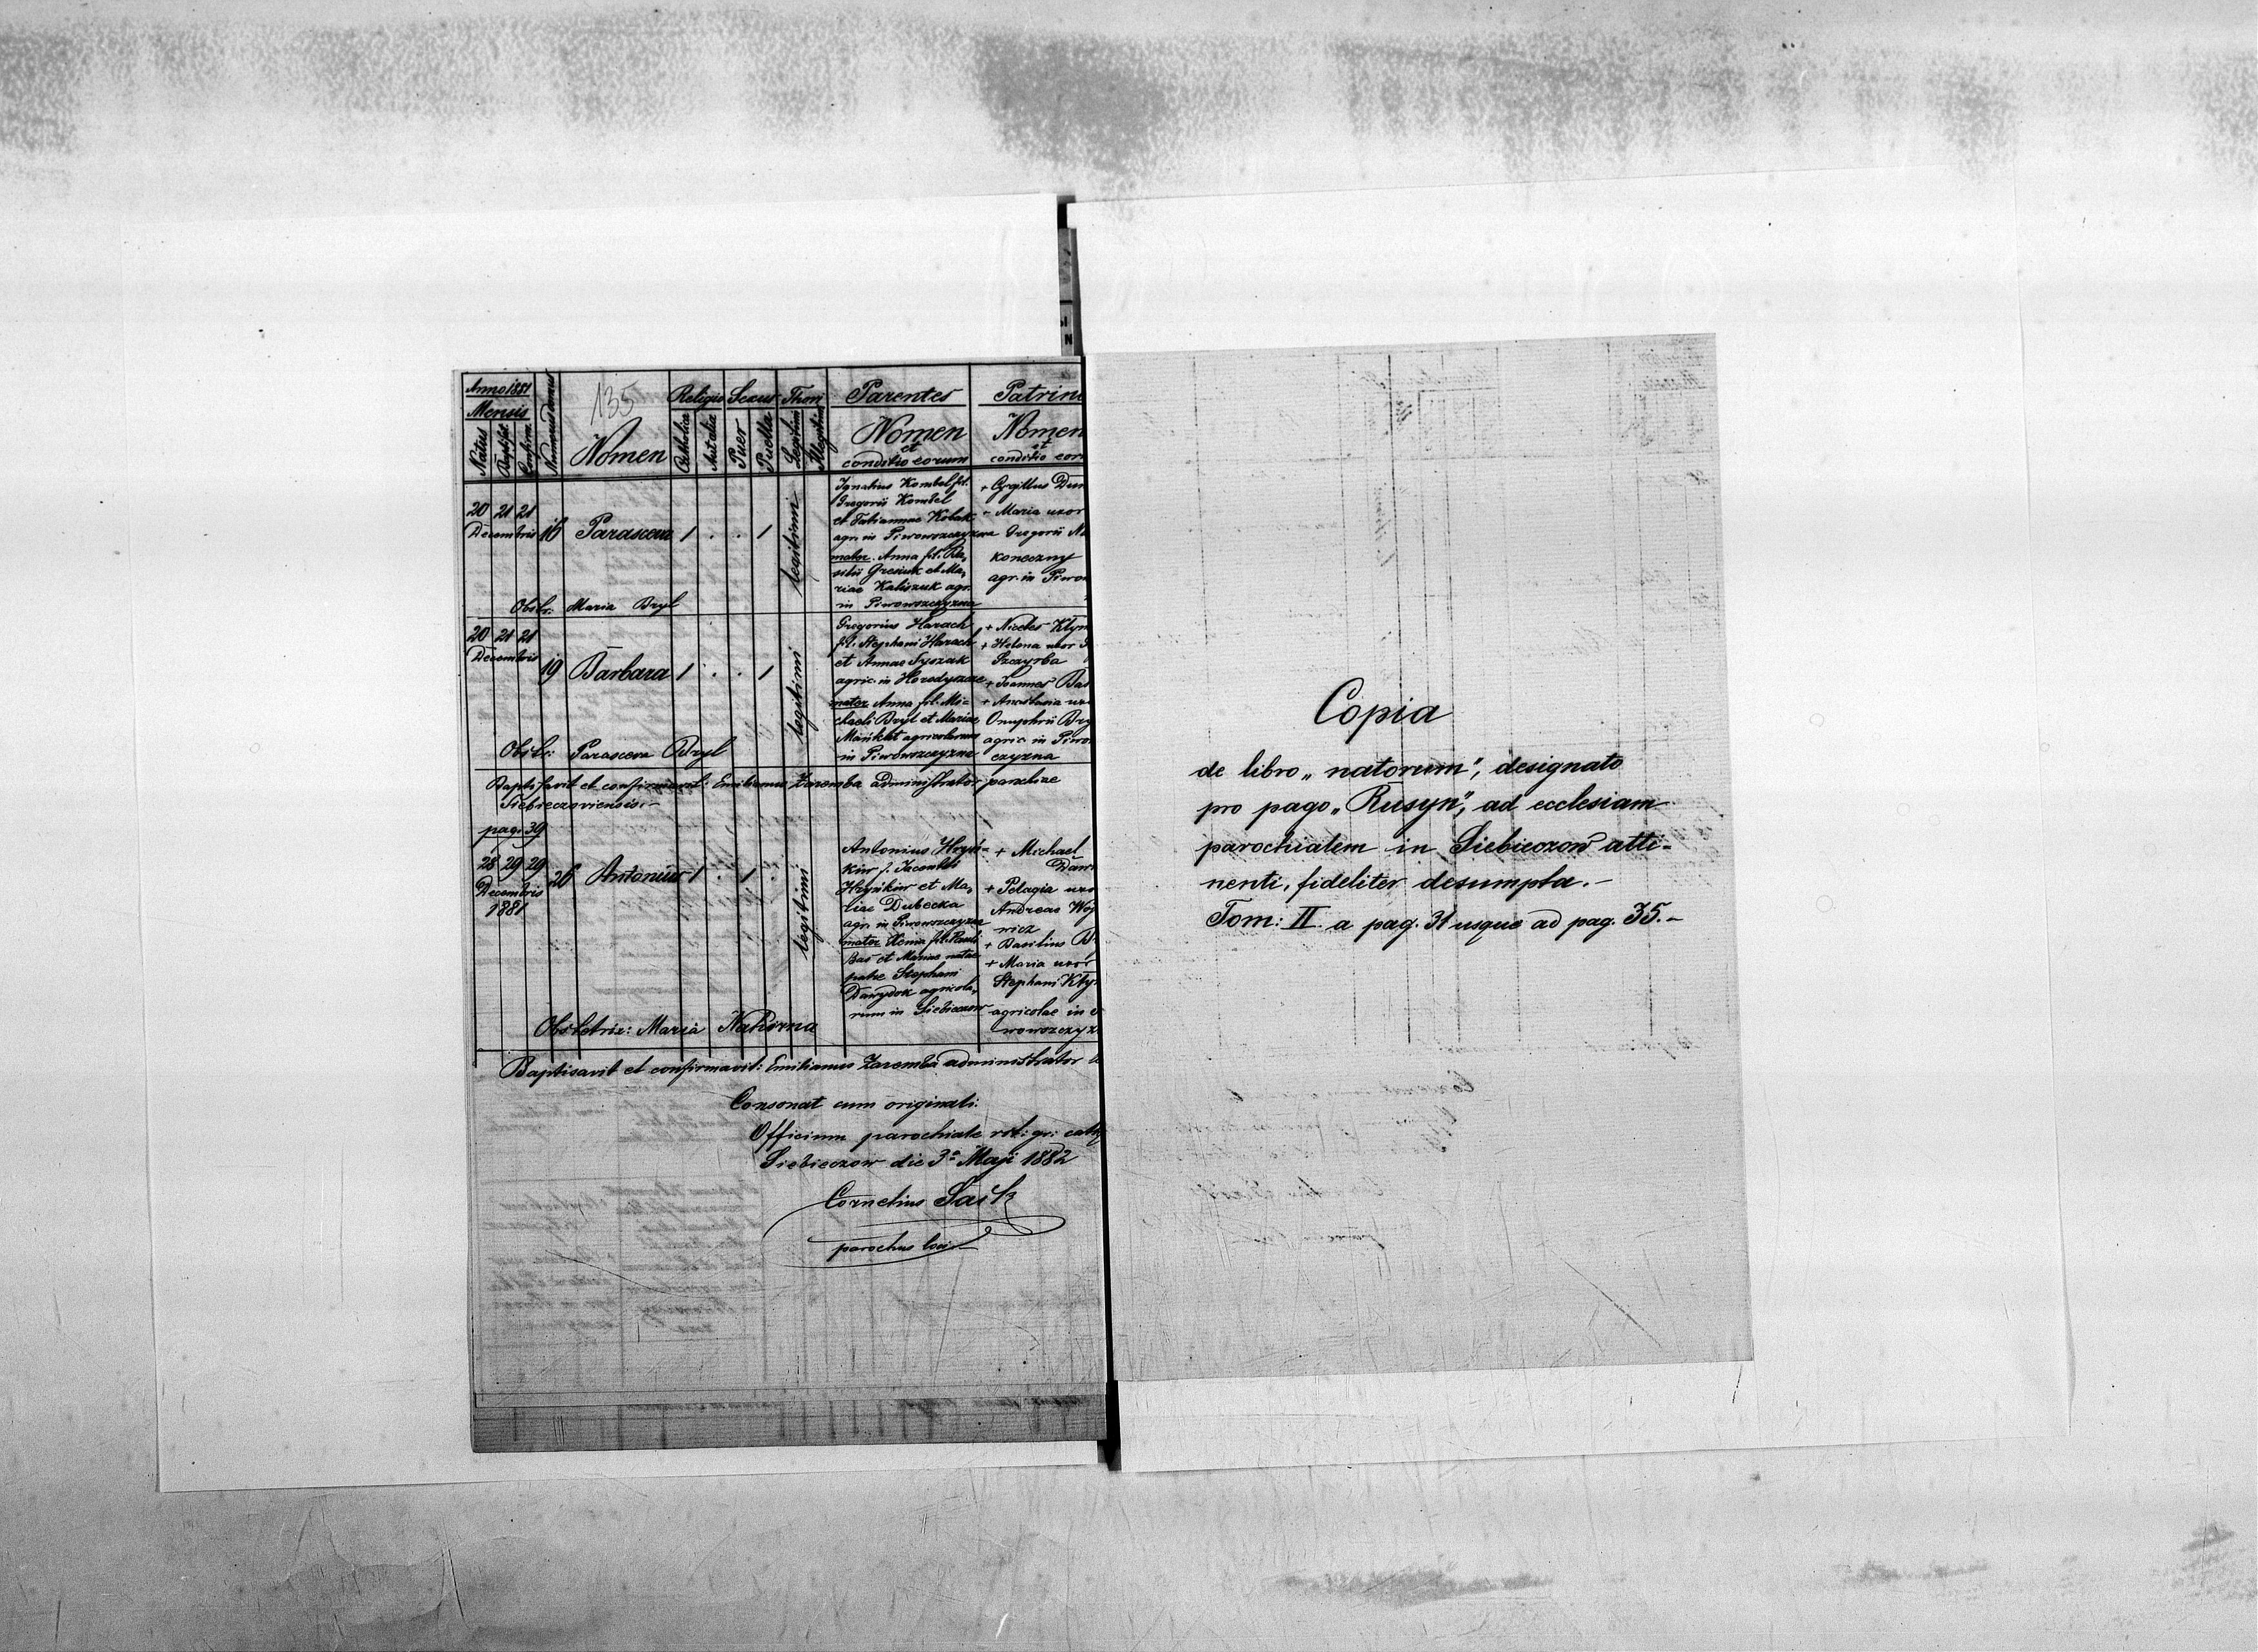 135
Anno 1881
Mensis
Natus
Baptisat
Confirm.
Numerus domus
Nomen
Religio
Catholica
Aut alia
Sexus
Puer
Puella
Thori
Legitimi
Illegitimi
Parentes
Nomen
et
conditio eorum
Patrini
Nomen
et
conditio eor
20 21 21
Decembris
16
Parasceva
1 . . 1
legitimi
Ignatius Kombel fil.
Gregorii Kombel
et Tatiannae Kobak
agr. in Piwowszczyzna
mater Anna fil. Ba,
silii Gresiuk et Ma,
riae Kaliszuk agr.
in Piwowszczyzna
+ Cyrillus Dem
- Maria uxor
Gregorii
koneczny
agr. in Piwow
Obstr: Maria Bryl
20 21 21
Decembris
19
Barbara
1 . . 1
legitimi
Gregorius Harach
fil. Stephani Harach
et Annae Tyszak
agric. in Horodyszcze
mater Anna fil. Mi=
chaeli Bryl et Mariae
agricolarum
in Piwowszczyzna
+ Nicetes Kłym
+ Helena uxor
Szczyrba
+ Joannes Bas
+ Anastasia uxo
Onuphrii Bry
agric. in Piwow
czyzna
Obstr: Parasceva Bryl
Baptisavit et confirmavit: Emilianus Zaremba administrator parochiae
Siebieczoviensis.-
pag. 39
28 29 29
Decembris
1881
26
Antonius
1 . 1 .
legitimi
Antonius Hryń=
kiw f. Jacenthi
Hryńkiw et Ma,
riae Dubecka
agr. in Piwowszczyzna
mater Xenia fil. Pauli
Bas et Mariae natae
patre Stephani
Dawydok agricola,
rum in Siebieczow
+ Michael
Daw
+ Pelagia uxo
Andreae Woj
wicz
+ Basilius B
+ Maria uxor
Stephani Kły
agricolae in
wowszczyz
Obstetrix: Maria Nahirna
Baptisavit et confirmavit: Emilianus Zaremba administrator
Consonat cum originali:
Officium parochiale rit: gr: cath
Siebieczow die 3ª Maji 1882
Cornelius Saik
parochus loci
Copia
de libro „natorum“, designato
pro pago „Rusyn“, ad ecclesiam
parochialem in Siebieczow atti=
nenti, fideliter desumpta.-
Tom: II a pag. 31 usque ad pag. 35.-